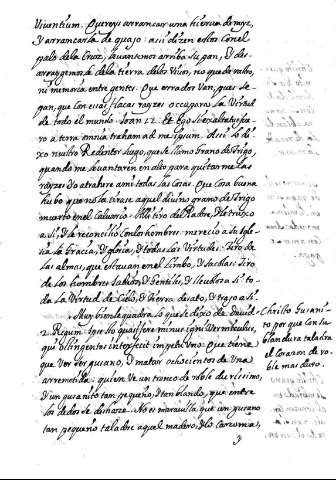 Viventium. Quereys arrancar una hierva de rayz,
y arrancarla de quajo: assi dizen estos con el
palo de la Cruz, levantemos arriba su pan, y des
arrayguemosle de la tierra de los vivos, no quede rastro,
ni memoria entre gentes. Que errados van, pues se-
gan, que con essas flacas rayzes ocuparà la virtud
de todo el mundo. Ioan. 12. Et Ego si exaltatus fue-
ro a terra omnia traham ad me ipsum. Assi lo di-
xo nuestro Redentor luego, que se llamo grano de trigo
quando me levantaren en alto para quitarme las
rayzes yo atrahere a mi todas las cosas. Que cosa buena
hubo que no la tirase aquel divino grano de trigo
muerto en el Calvario. Alli tiro del Padre, y le truxo
a si, y le reconcilio con los hombres: merecio a su Igle
sia la Gracia, y gloria, y todas las virtudes. Tiro de
las almas, que estavan en el Limbo, y sacolas: tiro
de los hombres Iudios, y Gentiles, y llevolos a si: to-
da la virtud de Cielo, y tierra desato, y trajo a si.
Muy bien le quadra lo que se dixo de David
2. Regum Ipse sto quasi tenerrimus ligni vermiculus,
qui octingentos interfecit impetu uno. Que tiene
que ver ser gusano, y matar ochocientos de una
arremetida. quien ve un tronco de roble durissimo,
y un gusanito tan pequeño, y tan blando, que entre
los dedos se deshaze. No es maravilla, que un gusano
tan pequeño taladre aquel madero, y lo carcoma,
y
Christo gusani-
to, por que con su
blandura taladra
el Corazon de ro-
ble mas duro.